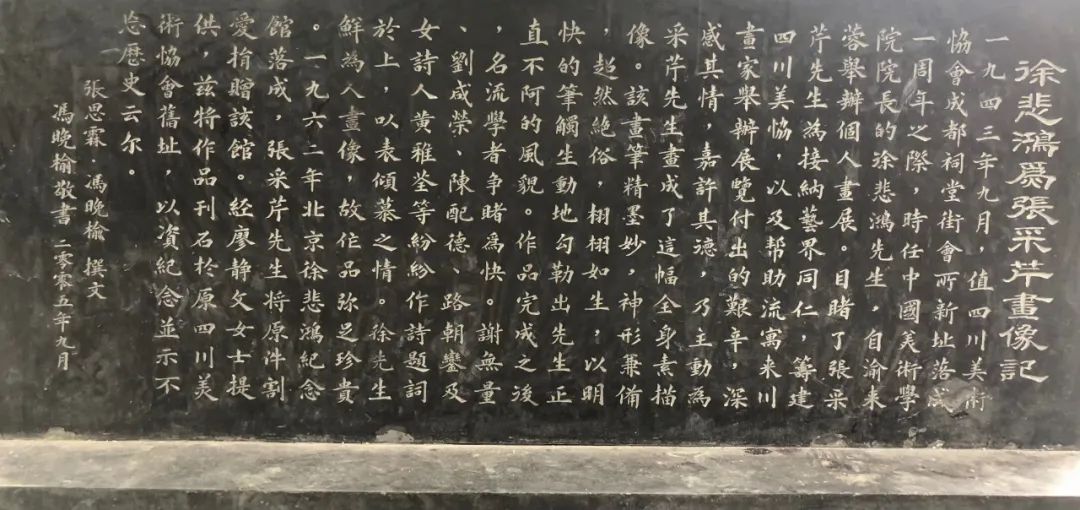 徐悲鴻爲張采芹畫像記
一九四三年九月，值四川美術
協會成都祠堂街會所新址落成
一周年之際，時任中國美術學
院院長的徐悲鴻先生，自渝来
蓉舉辦個人畫展。目睹了張采
芹先生爲接納藝界同仁，籌建
四川美協，以及帮助流寓来川
畫家舉辦展覽付出的艱辛，深
感其情，嘉許其德，乃主動爲
采芹先生畫成了這幅全身素描
像。該畫筆精墨妙，神形兼備
，超然絶俗，栩栩如生；以明
快的筆觸生動地勾勒出先生正
直不阿的風貌。作品完成之後
，名流學者争睹爲快。謝無量
、劉咸榮、陳配德、路朝鑾及
女詩人黄雅荃等紛紛作詩題詞
於上，以表傾慕之情。徐先生
鮮為人畫像，故作品弥足珍貴
。一九六二年北京徐悲鴻紀念
館落成，張采芹先生将原件割
愛捐贈該館。經廖静文女士提
供，兹将作品刊石於原四川美
術協會舊址，以資紀念並示不
忘歷史云尔。
張思霖·馮晚榆 撰文
馮晚榆敬書 二零零五年九月